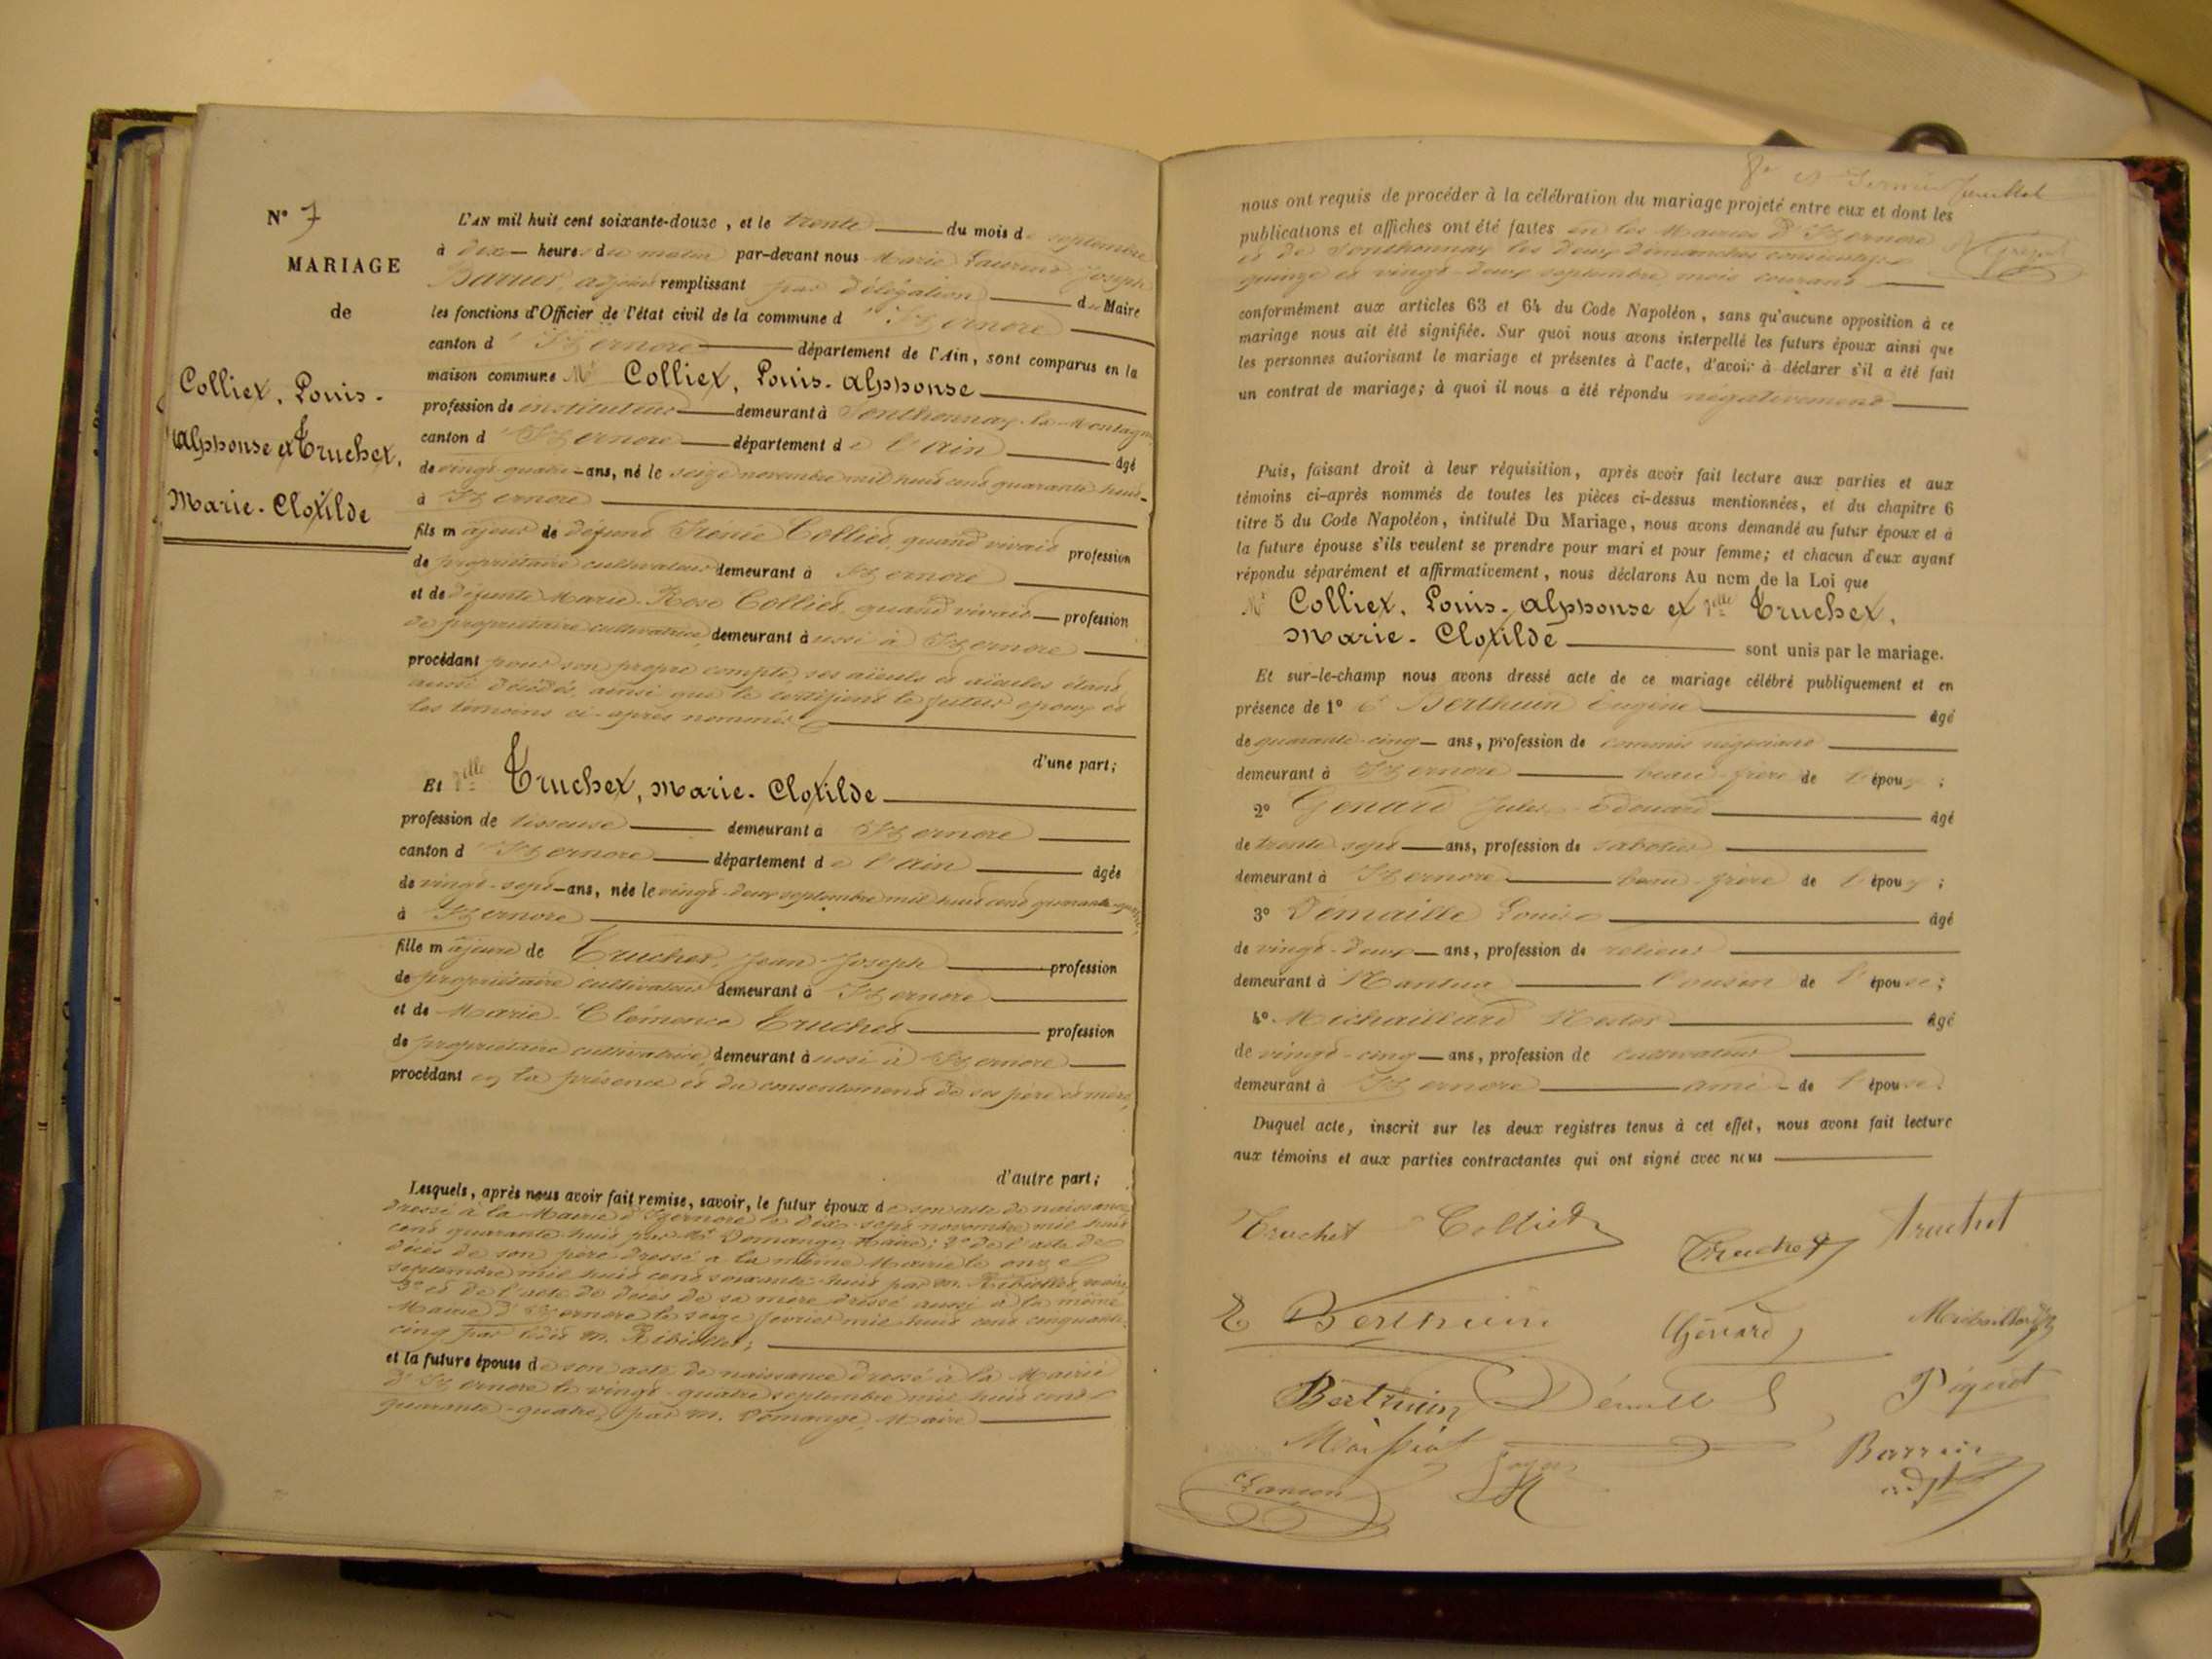 N° 7
MARIAGE
de
Colliet, Louis-
Alphonse et Truchet,
Marie-Clotilde
L'AN mil huit cent soixante-douze, et le trente du mois de septembre
à dix heures du matin par-devant nous Marie Laurent Joseph
Barrier, adjoint remplissant par délégation du Maire
les fonctions d'Officier de l'état civil de la commune d'Izernore
canton d'Izernore département de l'Ain, sont comparus en la
maison commune Mr Colliet, Louis-Alphonse
profession de instituteur demeurant à Sonthonnay-la-Montagne
canton d'Izernore département de l'Ain âgé
de vingt-quatre ans, né le seize novembre mil huit cent quarante huit
à Izernore
fils majeur de défunt Irénée Colliet, quand vivait profession
de propriétaire cultivateur demeurant à Izernore
et de défunte Marie-Rose Colliet, quand vivait profession
de propriétaire cultivatrice, demeurant aussi à Izernore
procédant pour son propre compte, ses aïeuls et aïeules étant
aussi décédés, ainsi que le certifient le futur époux et
les témoins ci-après nommés
d'une part;
Et Delle Truchet, Marie-Clotilde
profession de tisseuse demeurant à Izernore
canton d'Izernore département de l'Ain âgée
de vingt-sept ans, née le vingt-deux septembre mil huit cent quarante-quatre
à Izernore
fille majeure de Truchet, Jean-Joseph profession
de propriétaire cultivateur demeurant à Izernore
et de Marie-Clémence Truchet profession
de propriétaire cultivatrice, demeurant aussi à Izernore
procédant en la présence et du consentement de ses père et mère,
d'autre part;
Lesquels, après nous avoir fait remise, savoir, le futur époux de son acte de naissance
dressé à la Mairie d'Izernore le dix-sept novembre mil huit
cent quarante-huit par Mr Domange, Maire; 2° de l'acte de
décès de son père dressé à la même Mairie le onze
septembre mil huit cent soixante-huit par M. Ribiollet, maire
3° et de l'acte de décès de sa mère dressé aussi à la même
Mairie d'Izernore le seize février mil huit cent cinquante-
cinq par ledit M. Ribiollet;
et la future épouse de son acte de naissance dressé à la Mairie
d'Izernore le vingt-quatre septembre mil huit cent
quarante-quatre, par M. Domange, Maire
8e et dernier feuillet
nous ont requis de procéder à la célébration du mariage projeté entre eux et dont les
publications et affiches ont été faites en les Mairies d'Izernore
et de Sonthonnay les deux dimanches consécutifs
quinze et vingt-deux septembre, mois courant
conformément aux articles 63 et 64 du Code Napoléon, sans qu'aucune opposition à ce
mariage nous ait été signifiée. Sur quoi nous avons interpellé les futurs époux ainsi que
les personnes autorisant le mariage et présentes à l'acte, d'avoir à déclarer s'il a été fait
un contrat de mariage; à quoi il nous a été répondu négativement
Puis, faisant droit à leur réquisition, après avoir fait lecture aux parties et aux
témoins ci-après nommés de toutes les pièces ci-dessus mentionnées, et du chapitre 6
titre 5 du Code Napoléon, intitulé Du Mariage, nous avons demandé au futur époux et à
la future épouse s'ils veulent se prendre pour mari et pour femme; et chacun d'eux ayant
répondu séparément et affirmativement, nous déclarons Au nom de la Loi que
Mr Colliet, Louis-Alphonse et Delle Truchet,
Marie-Clotilde sont unis par le mariage.
Et sur-le-champ nous avons dressé acte de ce mariage célébré publiquement et en
présence de 1° Berthuin Eugène âgé
de quarante-cinq ans, profession de commis négociant
demeurant à Izernore beau-frère de l'époux;
2° Genard Jules-Edouard âgé
de trente sept ans, profession de sabotier
demeurant à Izernore beau-frère de l'époux;
3° Demaille Louis âgé
de vingt-deux ans, profession de relieur
demeurant à Nantua Cousin de l'épouse;
4° Michaillard Nestor âgé
de vingt-cinq ans, profession de cultivateur
demeurant à Izernore ami de l'épouse.
Duquel acte, inscrit sur les deux registres tenus à cet effet, nous avons fait lecture
aux témoins et aux parties contractantes qui ont signé avec nous
Truchet Colliet Truchet truchet
E Berthuin Génard Michaillard
Berthuin Pigerot
Lançon Barrier
adjt